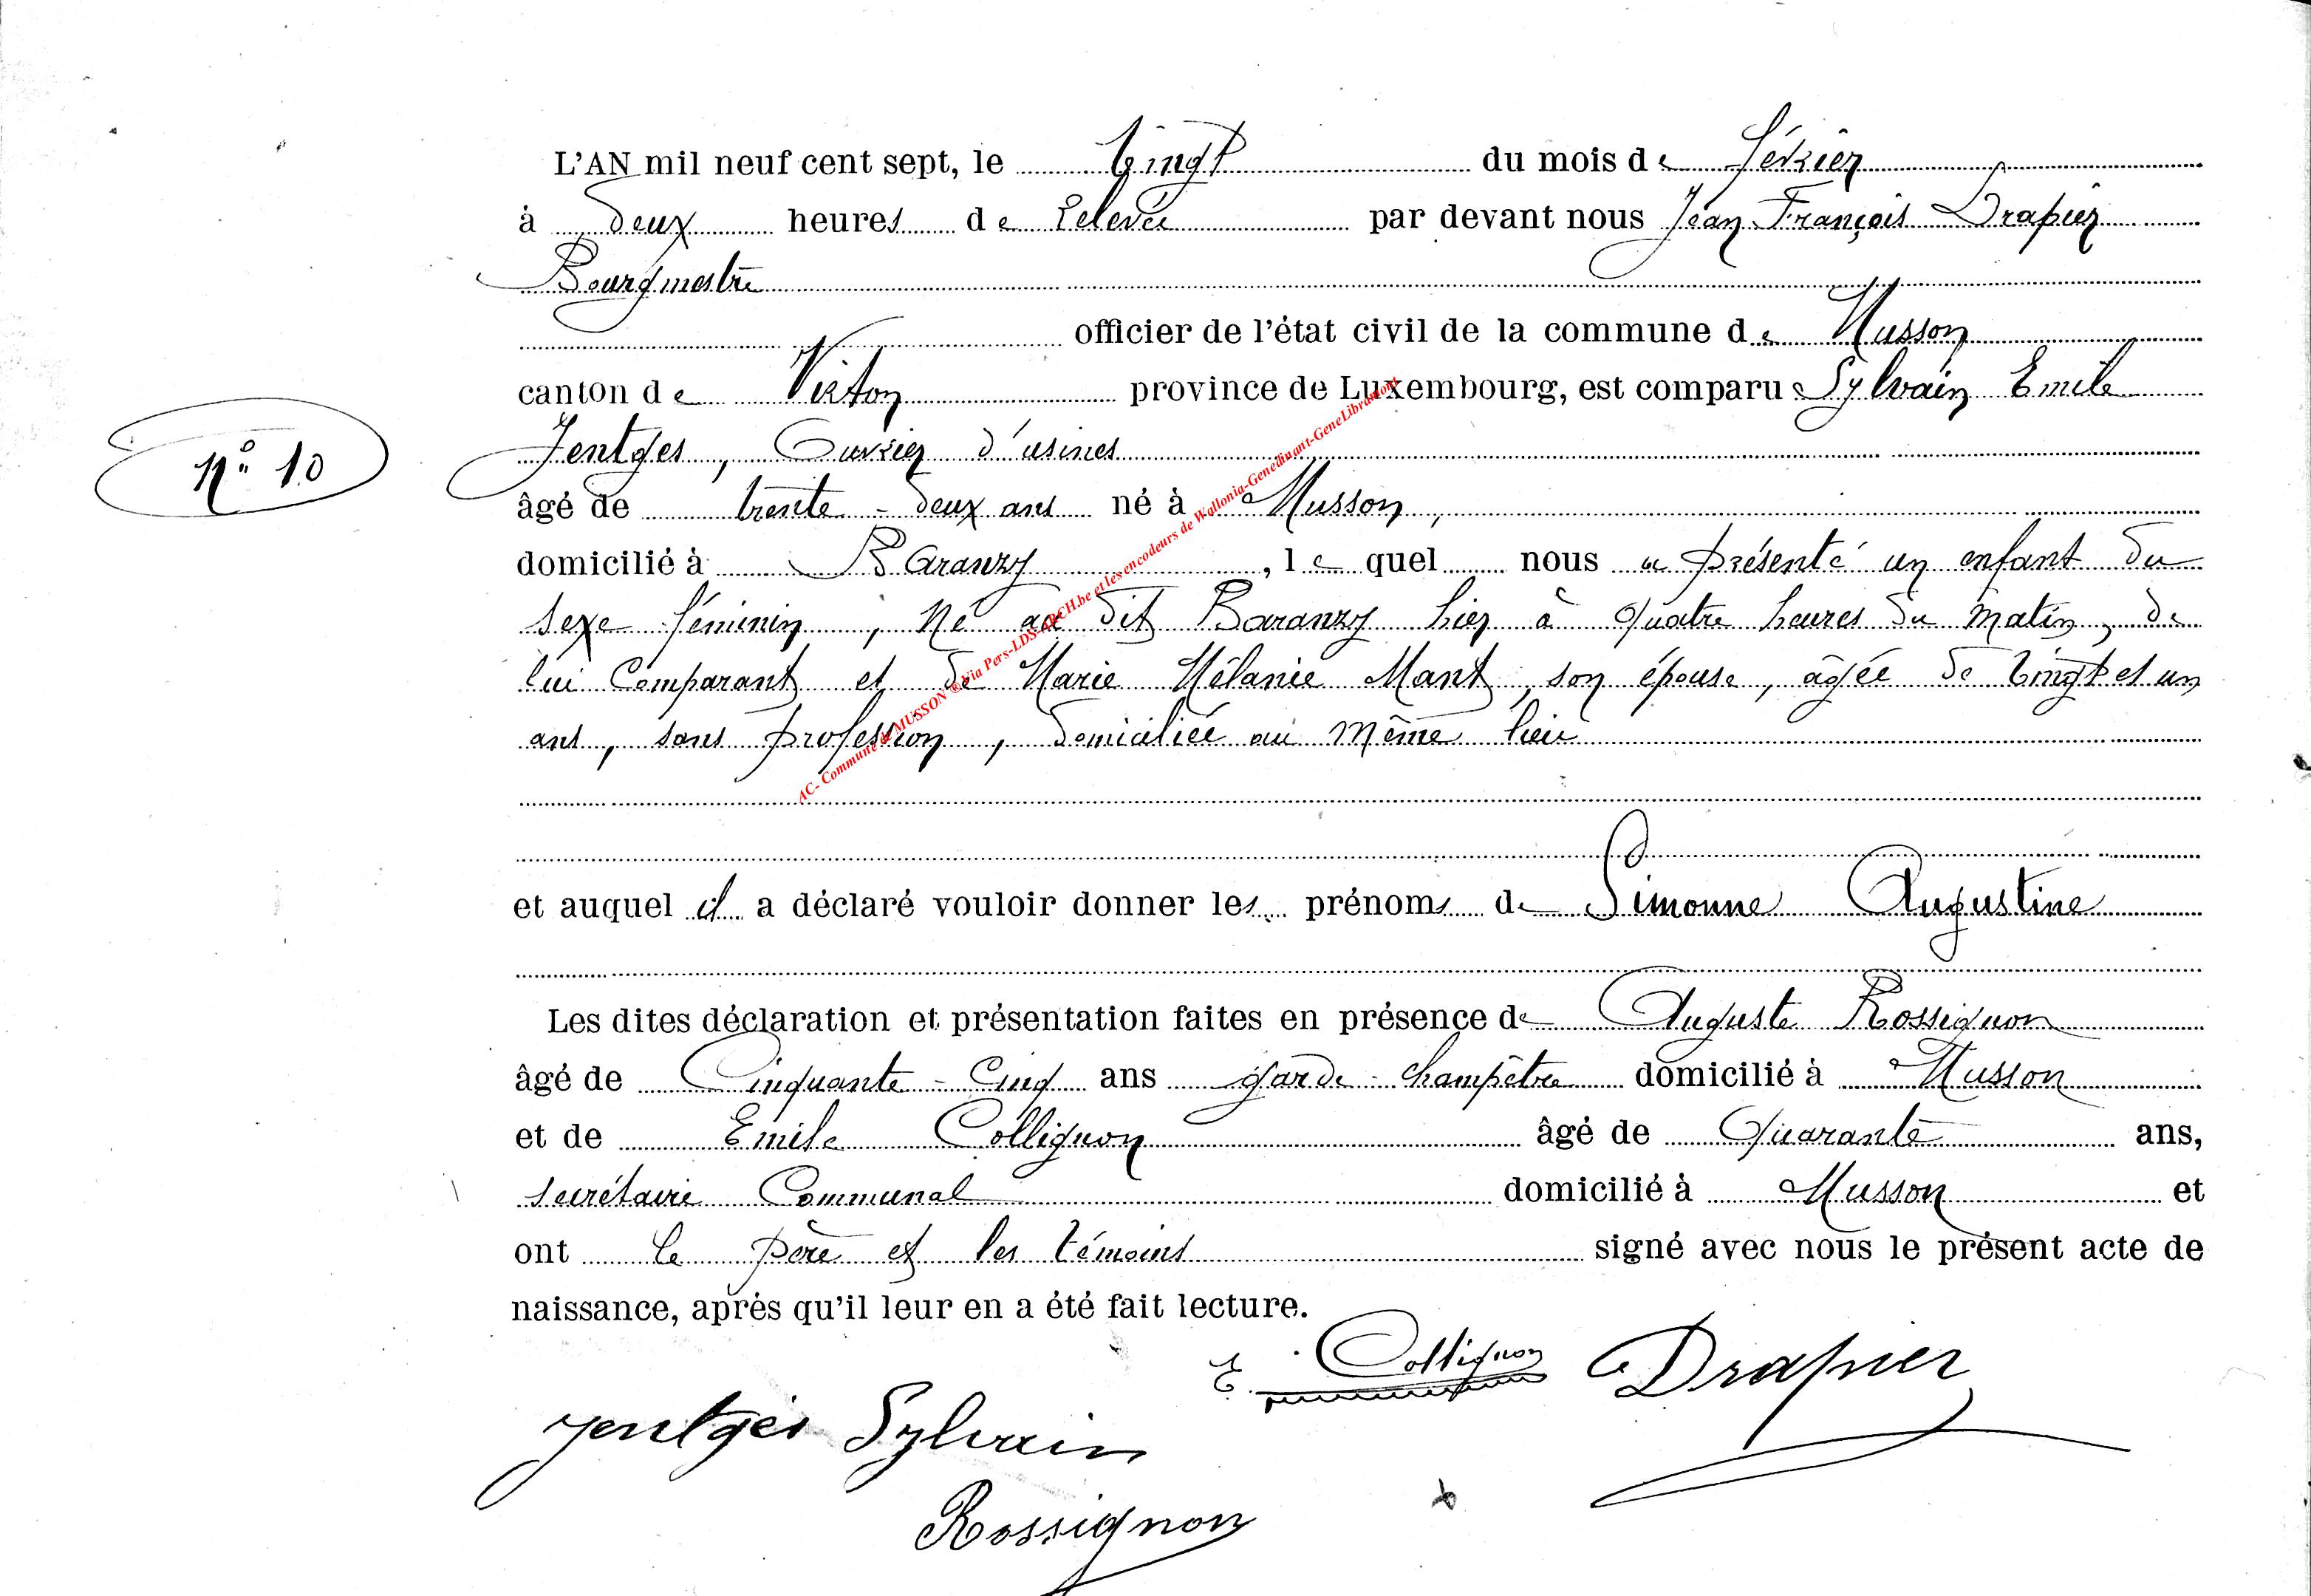 L'AN mil neuf cent sept, le vingt du mois de Février
à deux heures de relevée par devant nous Jean François Drapier
Bourgmestre
officier de l'état civil de la commune de Musson
canton de Virton province de Luxembourg, est comparu Sylvain Emile
Jentges, Ouvrier d'usines
N° 10
âgé de trente-deux ans né à Musson,
domicilié à Baranzy, le quel nous a présenté un enfant du
sexe féminin, né au dit Baranzy hier à quatre heures du matin, de
lui Comparant et de Marie Mélanie Mant, son épouse, âgée de vingt et un
ans, sans profession, domiciliée au même lieu
et auquel il a déclaré vouloir donner les prénoms de Simonne Augustine
Les dites déclaration et présentation faites en présence de Auguste Rossignon
âgé de Cinquante-Cinq ans garde-champêtre domicilié à Musson
et de Emile Collignon âgé de Quarante ans,
secrétaire Communal domicilié à Musson et
ont le père et les témoins signé avec nous le présent acte de
naissance, après qu'il leur en a été fait lecture.
E. Collignon Drapier
Jentges Sylvain
Rossignon
AC- Commune de MUSSON ® Via Pers-LDS-ARCH.be et les encodeurs de Wallonia-Genedinant-GeneLibramont